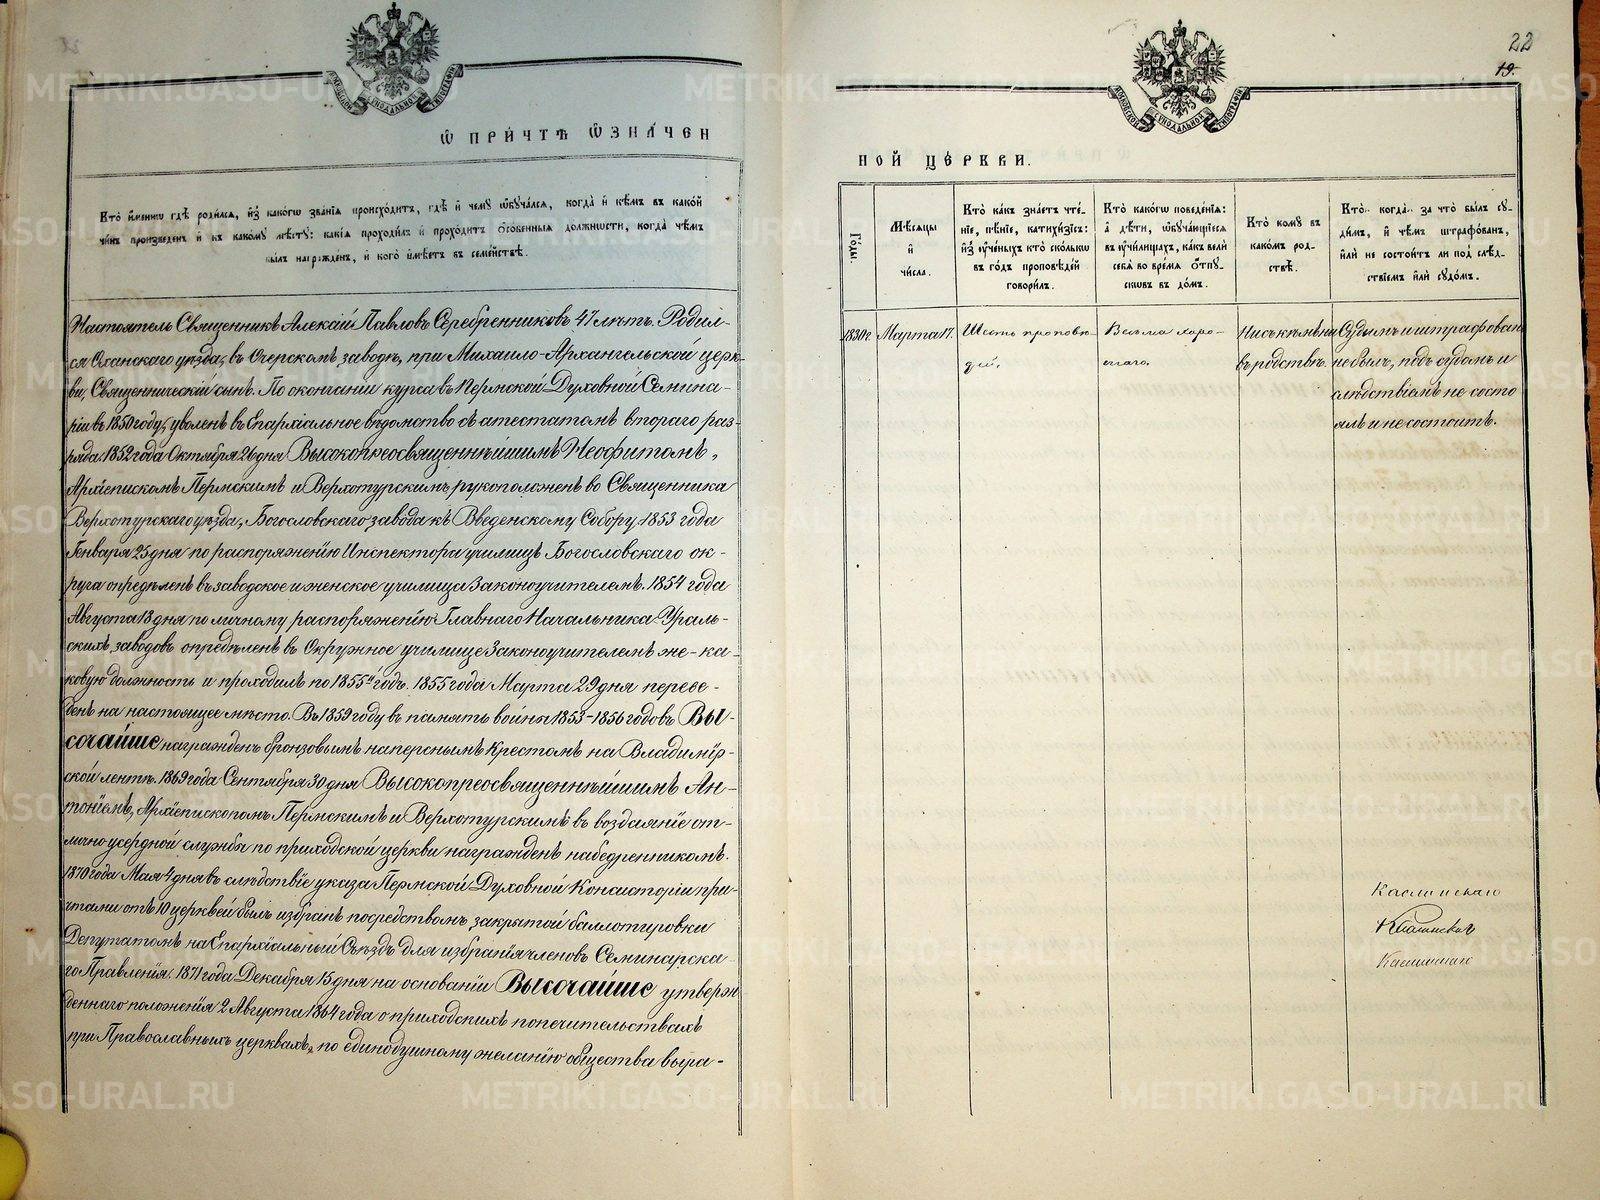 Ѿ ПРИ́ЧТѢ Ѿ҆ЗНА́ЧЕН
Кто̀ и҆́менно гдѣ̀ роди́лсѧ, и҆з̾ како́гѡ зва́нїѧ происхо́дитъ, гдѣ̀ и҆ чемꙋ̀ ѡ҆бꙋча́лсѧ, когда̀ и҆ кѣ́мъ въ како́й
чи́нъ произведе́нъ и҆ къ како́мꙋ мѣ́стꙋ: какі̑ѧ проходи́лъ и҆ прохо́дитъ ѻ҆со́бенныѧ до́лжности, когда̀ чѣ́мъ
бы́лъ награжде́нъ, и҆ кого̀ и҆мѣ́етъ въ семе́йствѣ.
Настоятель Священникъ Алексій Павловъ Серебренниковъ 47 лѣтъ. Родил-
ся Оханскаго уѣзда, въ Очерскомъ заводѣ, при Михаило-Архангельской церк-
ви, Священническій сынъ. По окончаніи курса въ Пермской Духовной Семина-
ріи въ 1850 году, уволенъ въ Епархіальное вѣдомство съ атестатомъ втораго раз-
ряда. 1852 года Октября 26 дня Высокопреосвященнѣйшимъ Неофитомъ,
Архіепископомъ Пермскимъ и Верхотурскимъ, рукоположенъ во Священника
Верхотурскаго уѣзда, Богословскаго завода къ Введенскому Собору. 1853 года
Генваря 25 дня по распоряженію Инспектора училищъ Богословскаго ок-
руга опредѣленъ въ заводское и женское училища Законоучителемъ. 1854 года
Августа 13 дня по личному распоряженію Главнаго Начальника Ураль-
скихъ заводовъ опредѣленъ въ Окружное училище Законоучителемъ же – ка-
ковую должность и проходилъ по 1855й годъ. 1855 года Марта 29 дня переве-
денъ на настоящее мѣсто. Въ 1859 году въ память войны 1853–1856 годовъ Вы-
сочайше награжденъ бронзовымъ наперснымъ Крестомъ на Владимір-
ской лентѣ. 1869 года Сентября 30 дня Высокопреосвященнѣйшимъ Ан-
тоніемъ, Архіепископомъ Пермскимъ и Верхотурскимъ въ воздаяніе от-
лично усердной службы по приходской церкви награжденъ набедренникомъ.
1870 года Мая 4 дня въ слѣдствіе указа Пермской Духовной Консисторіи при-
чтами отъ 10 церквей былъ избранъ посредствомъ закрытой баллотировки
Депутатомъ на Епархіальный Съѣздъ для избранія членовъ Семинарска-
го Правленія. 1871 года Декабря 15 дня на основаніи Высочайше утверж-
деннаго положенія 2 Августа 1864 года о приходскихъ попечительствахъ
при Православныхъ церквахъ, по единодушному желанію общества выра-
22
19.
НОЙ ЦЕ́РКВИ.
Го́ды.
Мѣ́сѧцы
и҆
чи́сла.
Кто̀ ка́къ зна́етъ чте́-
нїе, пѣ́нїе, катихи́зїсъ:
и҆з̾ ᲂу҆че́ныхъ кто̀ ско́лькѡ
въ го́дъ про́повѣдей
говори́лъ.
Кто̀ како́гѡ поведе́нїѧ:
а҆ дѣ́ти, ѡ҆бꙋча́ющїесѧ
въ ᲂу҆чи́лищахъ, ка́къ велѝ
себѧ̀ во вре́мѧ ѿпꙋ-
скѡвъ въ до́мъ.
Кто̀ комꙋ̀ въ
како́мъ род-
ствѣ̀.
Кто̀ когда̀ за что̀ бы́лъ сꙋ-
ди́мъ, и҆ чѣ́мъ штрафо́ванъ,
и҆лѝ не состои́тъ ли под̾ слѣ́д-
ствїемъ и҆лѝ сꙋдо́мъ.
Марта 17.
Шесть проповѣ-
дей.
Весьма хоро-
шаго.
Ни съ кѣмъ ни
въ родствѣ.
Судимъ и штрафован
не былъ, подъ судомъ и
слѣдствіемъ не состо
ялъ и не состоитъ.
Каслинскаго
Каслинскаго
METRIKI.GASO-URAL.RU